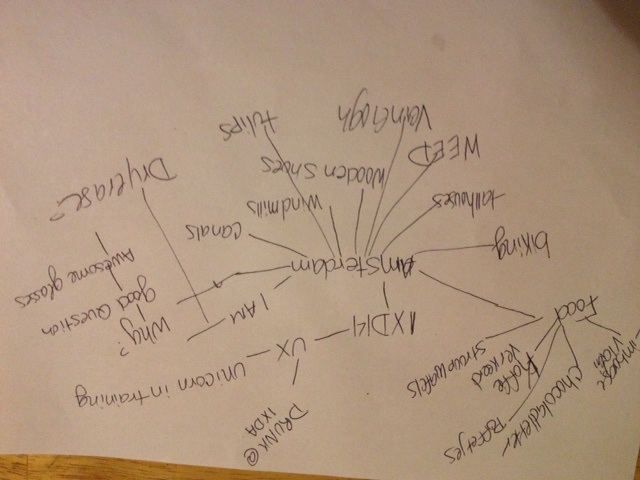 DRUNK @
IXDA
Unicorn in training
UX
IXDA
Why?
I AM
good Question
Awesome glasses
Dryerase?
Amsterdam
Canals
Windmills
tulips
Wooden Shoes
VanGogh
WEED
tallhouses
biking
Food
Stroopwafels
Koffie
Verkeerd
Poffertjes
Chocoladeletter